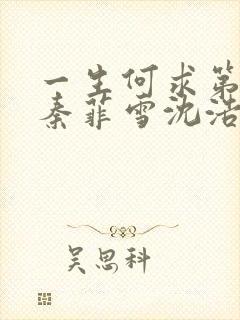 一生何求第
秦菲雪沈浩
吴思科